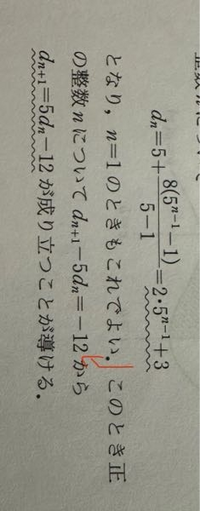 d_n=5+\frac{8(5^{n-1}-1)}{5-1}=2・5^{n-1}+3
となり，n=1のときもこれでよい．このとき正
の整数nについてd_{n+1}-5d_n=-12から
d_{n+1}=5d_n-12が成り立つことが導ける．